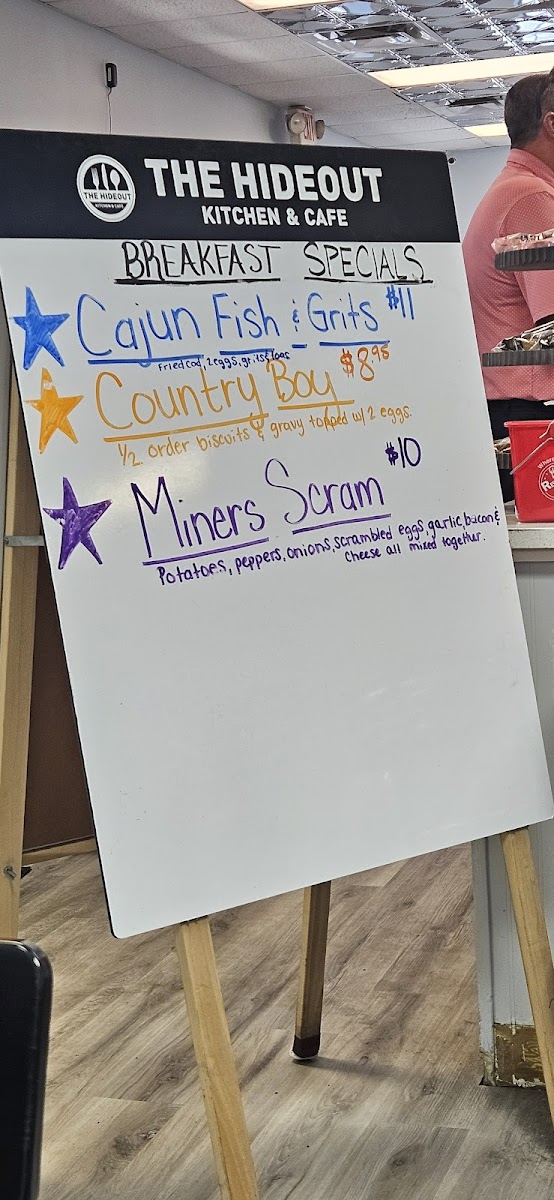 THE HIDEOUT
KITCHEN & CAFE
THE HIDEOUT
KITCHEN & CAFE
BREAKFAST SPECIALS
Cajun Fish & Grits $11
Fried cod, 2 eggs, grits & toas
Country Boy $8.95
1/2 order biscuits & gravy topped w/ 2 eggs.
Miners Scram $10
Potatoes, peppers, onions, scrambled eggs, garlic, bacon &
cheese all mixed together.